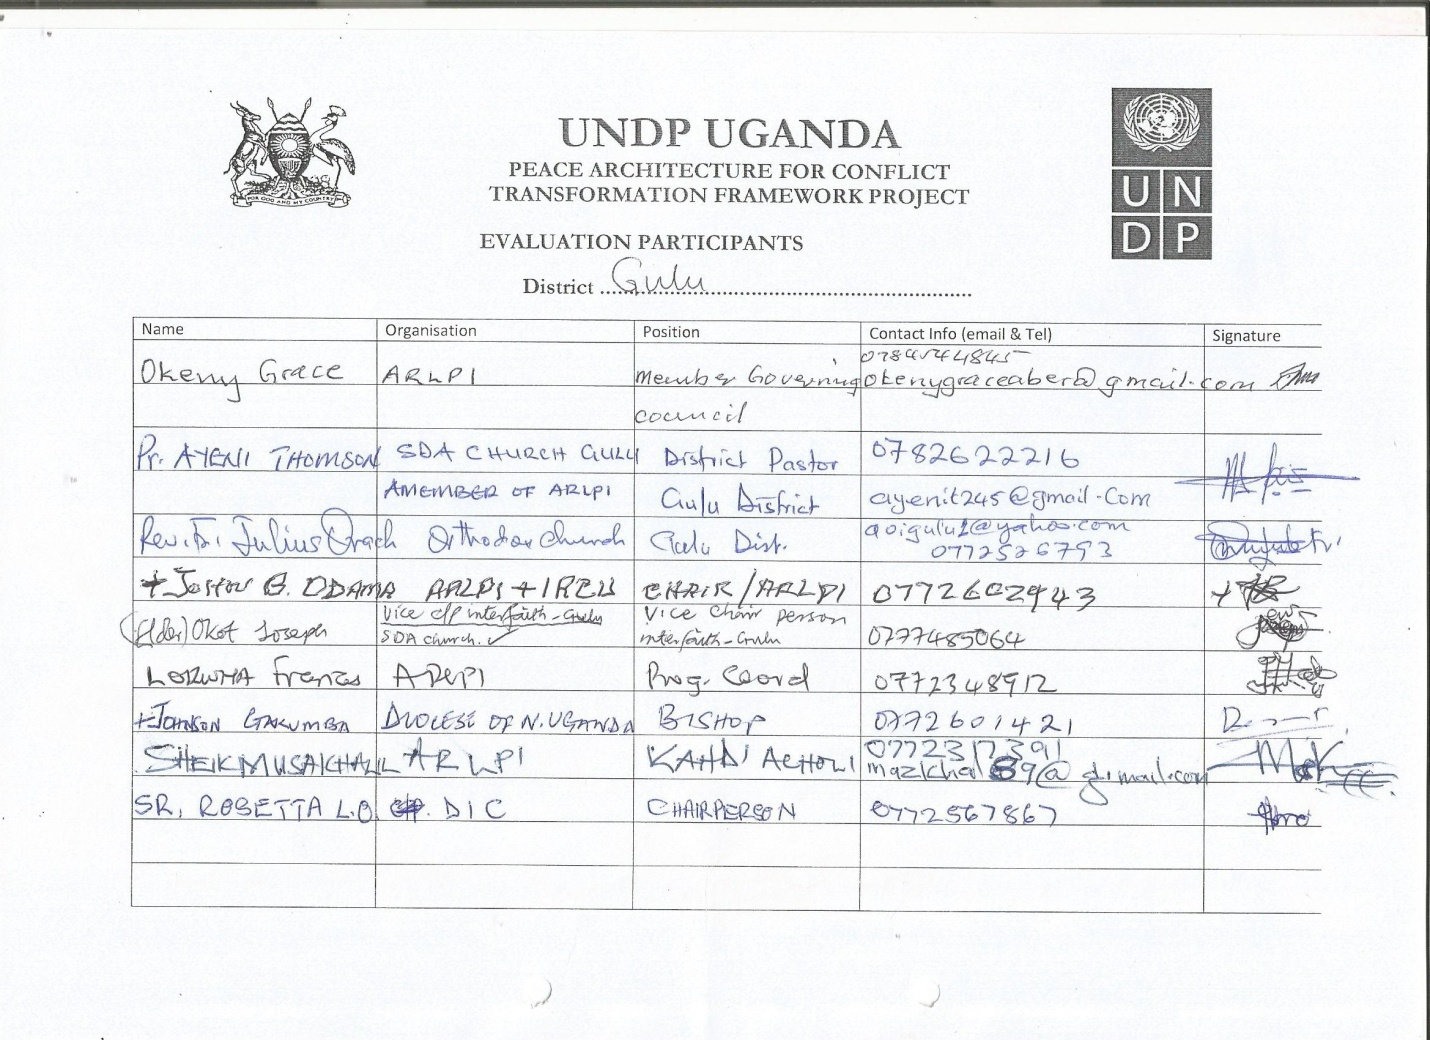 FOR GOD AND MY COUNTRY
UNDP UGANDA
PEACE ARCHITECTURE FOR CONFLICT
TRANSFORMATION FRAMEWORK PROJECT
UN
DP
EVALUATION PARTICIPANTS
District Gulu
Name Organisation Position Contact Info (email & Tel) Signature
Okeny Grace ARLPI Member Governing okenygraceaber@gmail.com
council
Pr. AYENI THOMSON SDA CHURCH GULU District Pastor 0782622216
AMEMBER OF ARLPI Gulu District ayenit245@gmail.com
Rev. Fr. Julius Orach Orthodox Church Gulu Dist. aoigulu1@yahoo.com
0772526793
+ John B. ODAMA ARLPI + CHAIR/ARLPI 0772602943
(Elder) Okot Joseph Vice c/p interfaith-Gulu Vice Chair person
SDA church. ✓ interfaith-Gulu 0777485064
Frances ARLPI Prog. Coord 0772348912
+ JOHNSON GAKUMBA DIOCESE OF N. UGANDA BISHOP 0772601421
SHEIK MUSA KHALIL ARLPI KAHDI ACHOLI 0772317391
SR. ROSETTA L.O. DIC CHAIRPERSON 0772567867